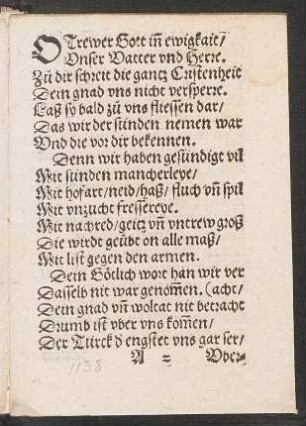 O Trewer Gott in̄ ewigkait/
Vnser Vatter vnd Herre.
Zů dir schreit die gantz Cristenheit
Dein gnad vns nicht versperre.
Laß so bald zů vns fliessen dar/
Das wir der sünden nemen war
Vnd die vor dir bekennen.
Denn wir haben gesündigt vil
Mit sünden mancherleye/
Mit hofart/neid/haß/ fluch vn̄ spil
Mit vnzucht fressereye.
Mit nachred/geitz vn̄ vntrew groß
Die wirdt geübt on alle maß/
Mit list gegen den armen.
Dein Götlich wort han wir ver
Dasselb nit war genom̄en. (acht/
Dein gnad vn̄ woltat nit betracht
Drumb ist vber vns kom̄en/
Der Türck d engstet vns gar ser/
A = Vber-
1138